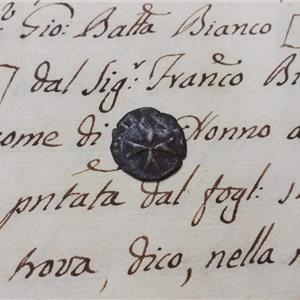 Gio: Batta Bianco
dal Sig.r Franco B
come di Nonno a
è
pntata dal fogl: s
trova, dico, nella